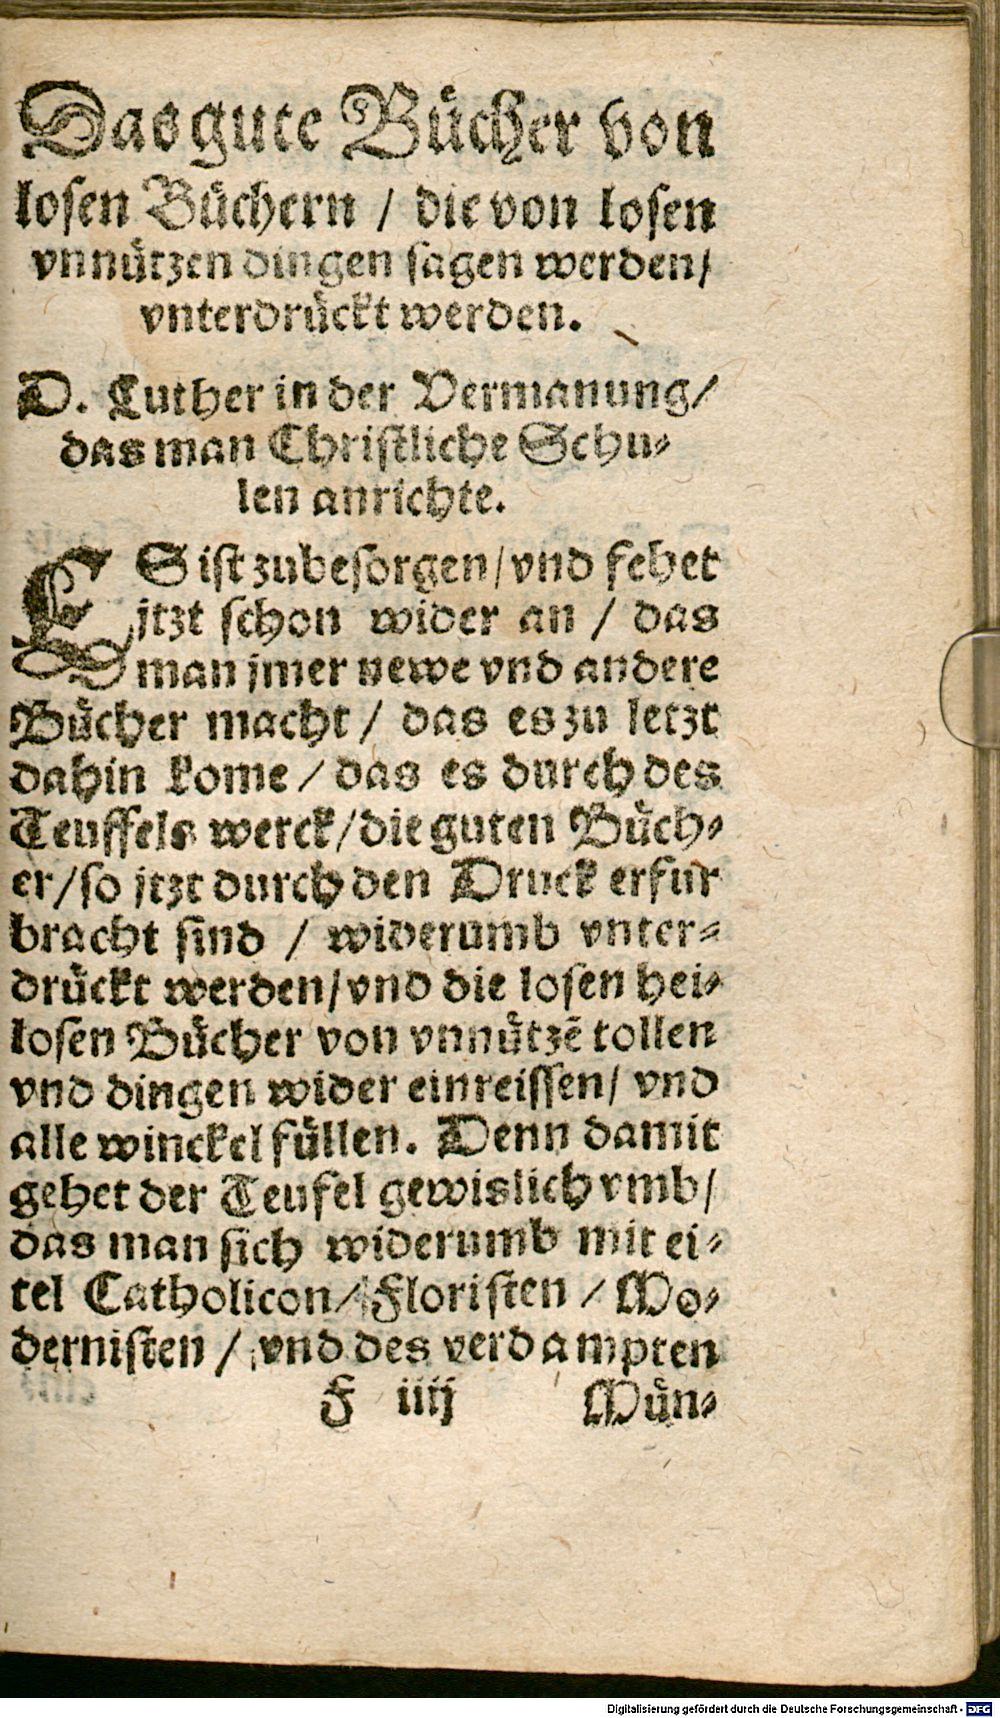 Das gute Bücher von
losen Büchern / die von losen
vnnützen dingen sagen werden/
vnterdrückt werden.
D. Luther in der Vermanung/
das man Christliche Schu-
len anrichte.
ES ist zubesorgen/vnd fehet
jtzt schon wider an / das
man jmer newe vnd andere
Bücher macht / das es zu letzt
dahin kome / das es durch des
Teuffels werck/die guten Büch-
er/so jtzt durch den Druck erfur
bracht sind / widerumb vnter-
drückt werden/vnd die losen hei-
losen Bücher von vnnützē tollen
vnd dingen wider einreissen/ vnd
alle winckel füllen. Denn damit
gehet der Teufel gewislich vmb/
das man sich widerumb mit ei-
tel Catholicon/ Floristen / Mo-
dernisten / vnd des verdampten
F iiij Mün-
Digitalisierung gefördert durch die Deutsche Forschungsgemeinschaft - DFG